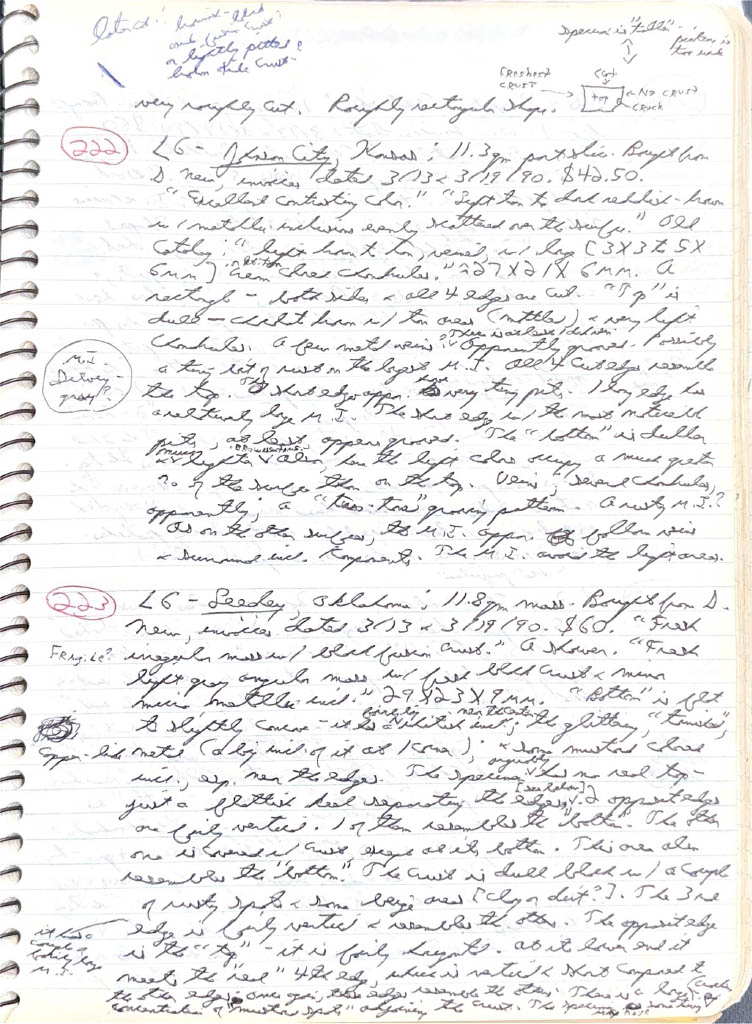 Specimen is "taller" -
picture is
too wide
or lightly pitted?
brown side crust -
Freshest crust → Cut
top
No crust
crack
very roughly cut. Roughly rectangular shape.
222
L6 - Johnson City, Kansas; 11.3gm part slice. Bought from
D. New, invoices dated 3/13 & 3/19/90. $42.50.
"Excellent contrasting color." "Light tan to dark reddish-brown
w/ metallic inclusions evenly scattered over the surface." Old
Catalog: "light brown to tan, veined, w/ large [3X3 to 5X
6mm] colored chondrules." 27X21X6mm. A
rectangle - both sides & all 4 edges are cut. "Top" is
dull - chocolate brown w/ tan areas (mottled) & very light
chondrules. A few metal veins. Apparently grooved. Possibly
a tiny bit of rust on the largest M.I. All 4 cut edges resemble
the top. Short edge appar. very tiny pits. 1 long edge has
a relatively large M.I. The short edge w/ the most noticeable
pits, at least, appears grooved. The "bottom" is duller
& lighter. Also, here the light colors occupy a much greater
% of the surface than on the top. Veins, several chondrules,
apparently, a "criss-cross" grooving pattern. A rusty M.I.?
As on the other surfaces, the M.I. appar. follow veins
& surround incl. components. The M.I. avoid the light areas.
M.I.
Silvery-
gray?
223
L6 - Seeley, Oklahoma; 11.8gm mass. Bought from D.
New, invoices dated 3/13 & 3/19/90. $60. "Fresh
Fragile?
irregular mass w/ black fusion crust." A shower. "Fresh
light gray angular mass w/ fresh black crust & minor
micro metallic incl." 29X23X9mm. "Bottom" is flat
to slightly concave - it has whitish incl.; the glittery, "tarnished",
copper-like metal (a big incl. of it at 1 corner); & some mustard colored
incl., esp. near the edges. The specimen arguably has no real top -
just a flattish heel separating the edges. [see below] 2 opposite edges
are fairly vertical. 1 of them resembles the "bottom". The other
one is covered w/ crust except at its bottom. This area also
resembles the "bottom." The crust is dull black w/ a couple
of rusty spots & some beige areas [clay or dirt?]. The 3rd
edge is fairly vertical & resembles the others. The opposite edge
is the "top" - it is fairly
At its lower end it
meets the "real" 4th edge, which is vertical & short compared to
the other edges. Once again, these edges resemble the others. There is a
concentration of "mustard spots" adjoining the crust. The specimen
it has a
couple of
fairly large
M.I.